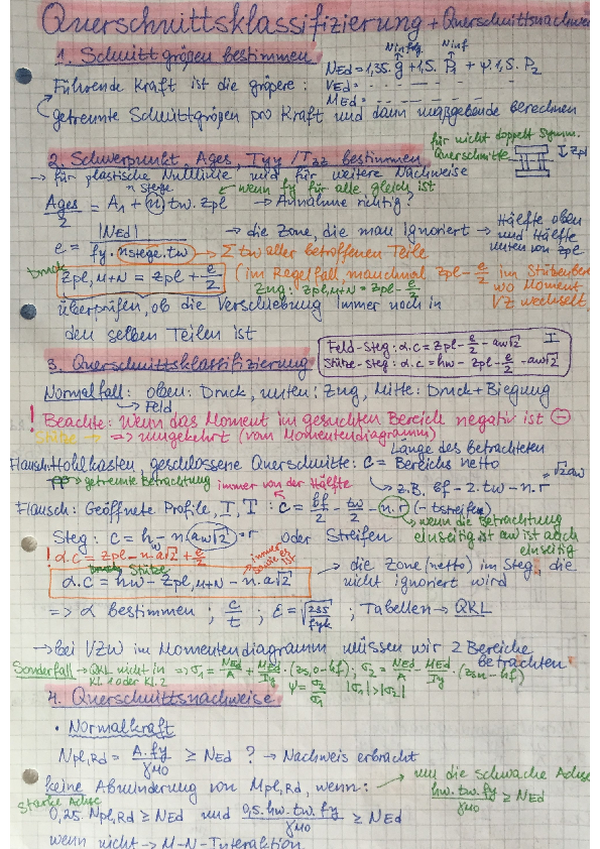 Querschnittsklassifizierung + Querschnittsnachwei
1. Schnittgrößen bestimmen
Führende Kraft ist die größere:
NEd = 1,35. g + 1,5. P1 + ψ.1,5. P2
VEd =
MEd =
getrennte Schnittgrößen pro Kraft und dann maßgebende berechnen
2. Schwerpunkt, Ages, Iyy / Izz bestimmen
für nicht doppelt Symm. Querschnitte
I zpl
→ für plastische Nulllinie und für weitere Nachweise
n Stege
wenn fy für alle gleich ist
Ages/2 = A1 + n. tw. zpl → Annahme richtig?
e = |NEd| / fy. nstege.tw
→ die Zone, die man ignoriert → Hälfte oben und Hälfte unten von zpl
→ Σ tw aller betroffenen Teile
Druck
zpl,M+N = zpl + e/2
(im Regelfall, manchmal zpl - e/2 im Stützenber
wo Moment VZ wechselt
Zug: zpl,M+N = zpl - e/2
überprüfen, ob die Verschiebung immer noch in
den selben Teilen ist
Feld-Steg: α.c = zpl - e/2 - aw√2
Stütze-Steg: α.c = hw - zpl - e/2 - aw√2
I
3. Querschnittsklassifizierung
Normalfall: oben: Druck, unten: Zug, Mitte: Druck + Biegung
→ Feld
! Beachte: Wenn das Moment im gesuchten Bereich negativ ist ⊖
Stütze → => umgekehrt (vom Momentendiagramm)
Flansch: Hohlkasten, geschlossene Querschnitte: c = Länge des betrachteten Bereichs netto
→ getrennte Betrachtung
immer von der Hälfte
→ z.B. bf - 2.tw - n.r
= √2 aw
Flansch: Geöffnete Profile, I, T : c = bf/2 - tw/2 - n.r (- tsstreifen)
wenn die Betrachtung einseitig ist aw ist auch einseitig
Steg: c = hw - n(aw√2) r oder Streifen
! α.c = zpl - n.a√2 + e/2
immer so wie er ist
Stütze
α.c = hw - zpl,M+N - n.a√2
→ die Zone (netto) im Steg, die
nicht ignoriert wird
=> α bestimmen ; c/t ; ε = √235/fyk ; Tabellen → QKL
→ bei VZW im Momentendiagramm müssen wir 2 Bereiche
betrachten
Sonderfall → QKL nicht in Kl. 1 oder Kl. 2 => σ1 = NEd/A + MEd/Iy . (zs,o - hf) ; σ2 = NEd/A - MEd/Iy . (zsu - hf)
ψ = σ2/σ1 |σ1| > |σ2|
4. Querschnittsnachweise
• Normalkraft
Npl,Rd = A. fy / γM0 ≥ NEd ? → Nachweis erbracht
keine Abminderung von Mpl,Rd, wenn:
→ um die schwache Achse
hw. tw. fy / γM0 ≥ NEd
Starke Achse
0,25. Npl,Rd ≥ NEd und 0,5. hw. tw. fy / γM0 ≥ NEd
wenn nicht → M-N-Interaktion